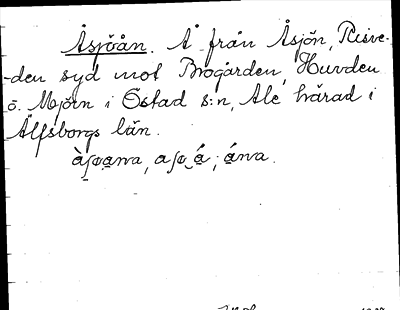 Åsjöån. Å från Åsjön, Risve-
-den syd mot Brogården, Huvden
ö. Mjörn i Östad s:n, Ale härad i
Älfsborgs län.